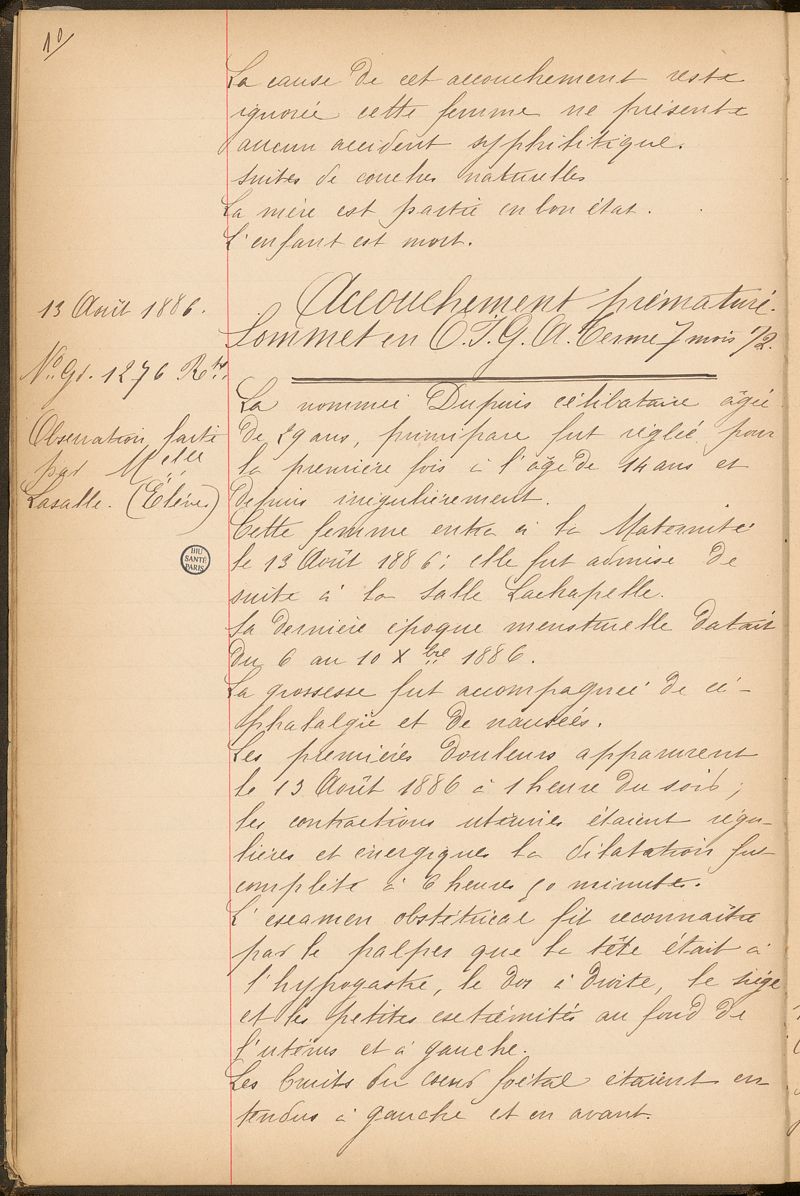 10/
La cause de cet accouchement reste
ignorée cette femme ne présente
aucun accident syphilitique.
suites de couches naturelles
La mère est partie en bon état.
L'enfant est mort.
13 Août 1886.
Accouchement prématuré.
Sommet en O.I.G.A. Terme 7 mois 1/2.
No. Gl. 1276 Rtre.
Observation faite
par Melle
Lasalle. (Elève)
BIU
SANTÉ
PARIS
La nommée Dupuis célibataire âgée
de 29 ans, primipare fut réglée pour
la première fois à l'âge de 14 ans et
depuis irrégulièrement.
Cette femme entra à la Maternité
le 13 Août 1886; elle fut admise de
suite à la salle Lachapelle.
Sa dernière époque menstruelle datait
du 6 au 10 Xbre 1886.
La grossesse fut accompagnée de cé-
phalalgie et de nausées.
Les premières douleurs apparurent
le 13 Août 1886 à 1 heure du soir;
les contractions utérines étaient régu-
lières et énergiques la dilatation fut
complète à 6 heures 50 minutes.
L'examen obstétrical fit reconnaître
par le palper que la tête était à
l'hypogastre, le dos à droite, le siège
et les petites extrémités au fond de
l'utérus et à gauche.
Les bruits du coeur foetal étaient en
tendus à gauche et en avant.